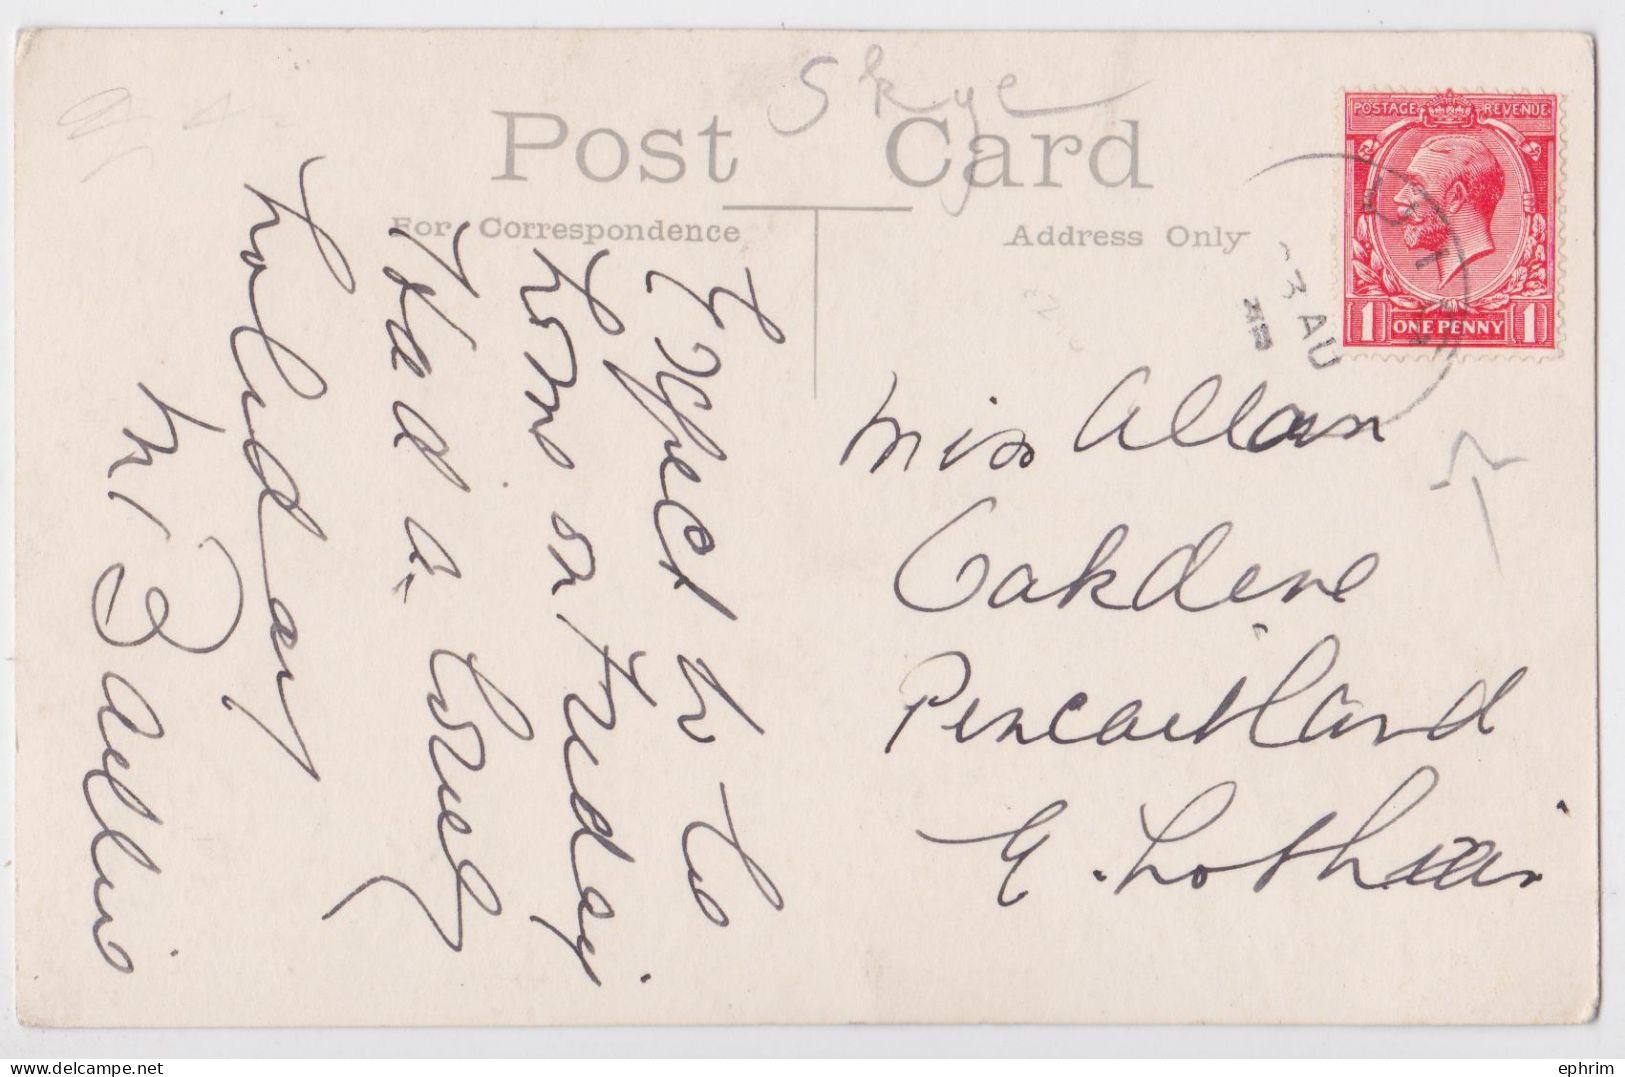 Skye
Post Card
For Correspondence
Address Only
POSTAGE REVENUE
1 ONE PENNY 1
3 AU
Miss Allan
Oakdene
Pencaitland
E. Lothian
Expect to be
home on Friday.
Had a lovely
holiday
M B